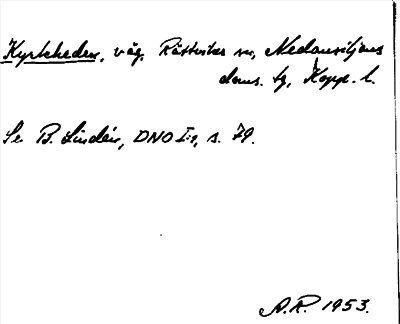 Kyrkheden, väg, Rättviks sn, Nedansiljans
doms. tg, Kopp. l.
Se B. Lindén, DNO I:1, s. 79.
A.R. 1953.